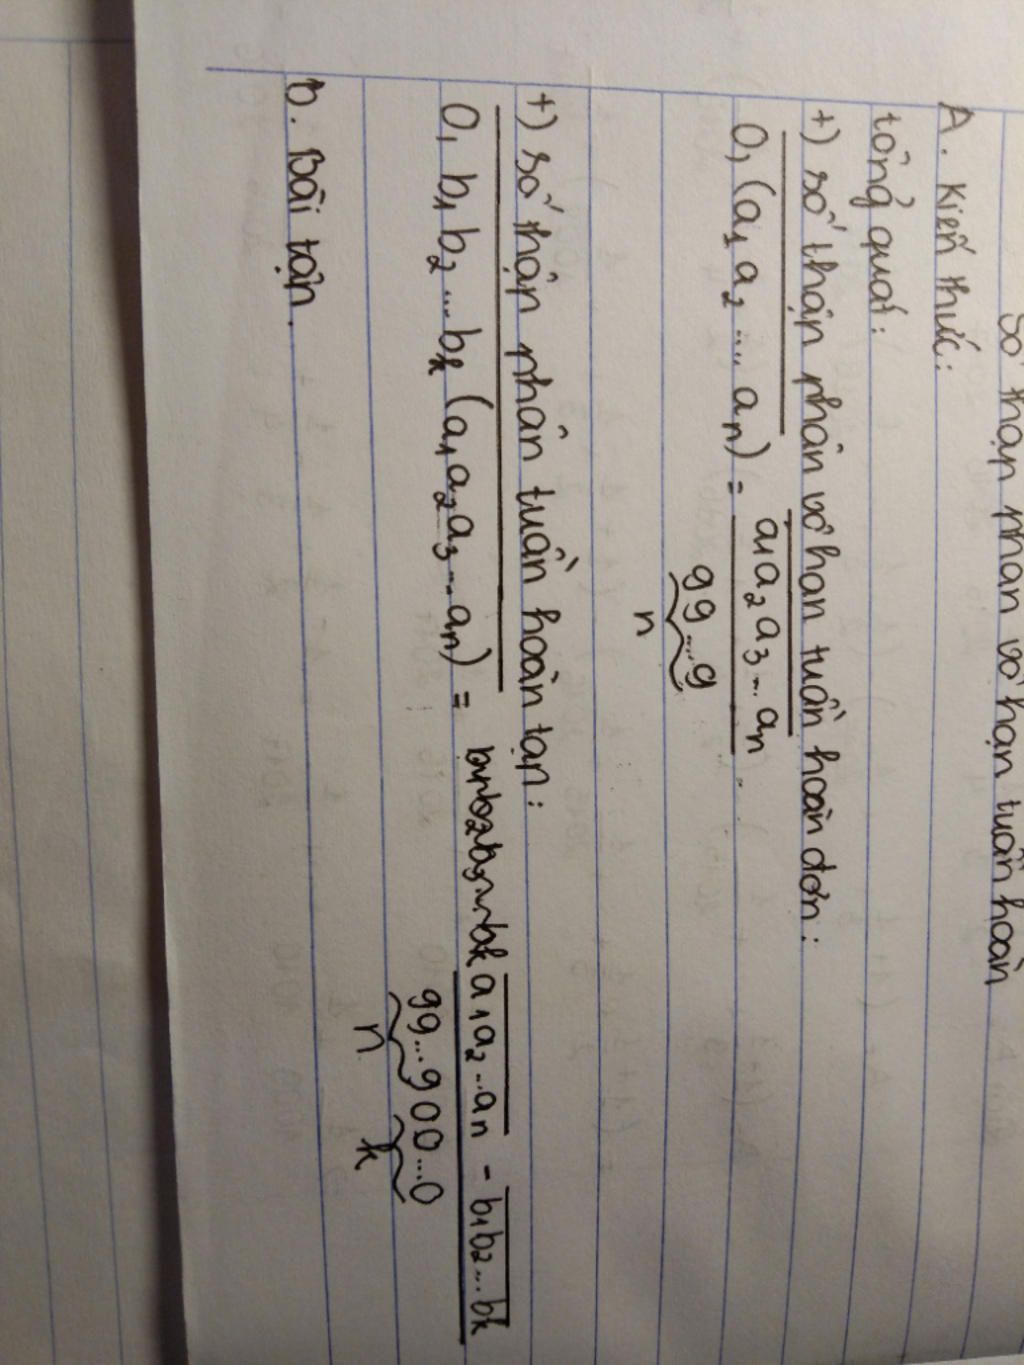 Số thập phân vô hạn tuần hoàn
A. Kiến thức:
tổng quát:
+) số thập phân vô hạn tuần hoàn đơn:
0, (a₁ a₂ .... aₙ) = a₁a₂a₃...aₙ
99....9
n
+) số thập phân tuần hoàn tạp:
0, b₁ b₂ ... bₖ (a₁a₂a₃...aₙ) = b₁b₂b₃...bₖa₁a₂...aₙ - b₁b₂...bₖ
99...900...0
n k
b. Bài tập.